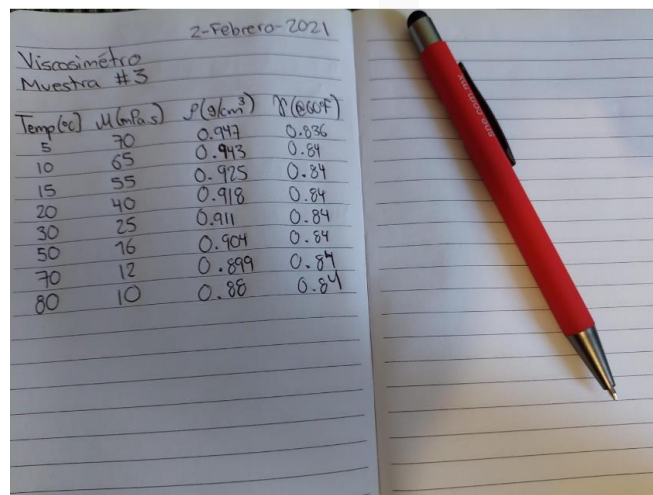 2-Febrero-2021
Viscosimétro
Muestra #3
Temp(°C) μ(mPa.s) ρ(g/cm³) γ(@60°F)
5 70 0.947 0.836
10 65 0.943 0.84
15 55 0.925 0.84
20 40 0.918 0.84
30 25 0.911 0.84
50 16 0.904 0.84
70 12 0.899 0.84
80 10 0.88 0.84